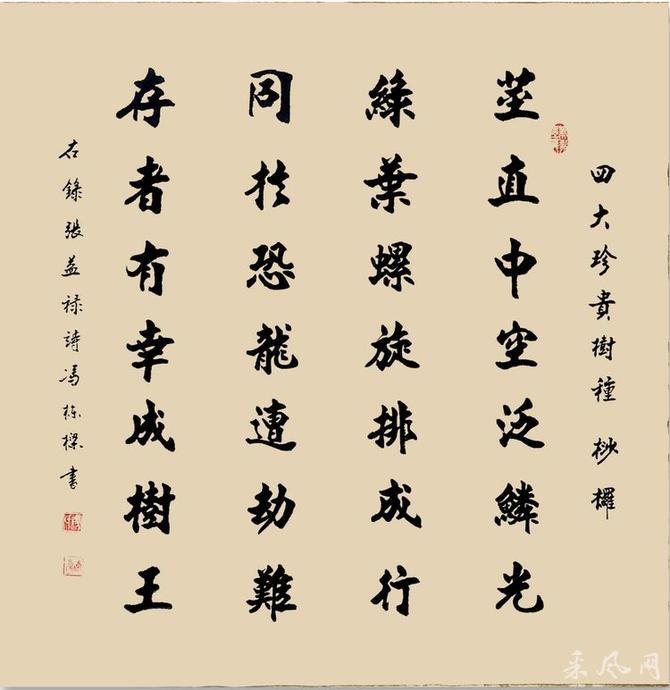 四大珍貴樹種 桫欏
莖直中空泛鱗光
綠葉螺旋排成行
同扵恐龍遭劫難
存者有幸成樹王
右錄張益祿詩馮栋樑書
采风网